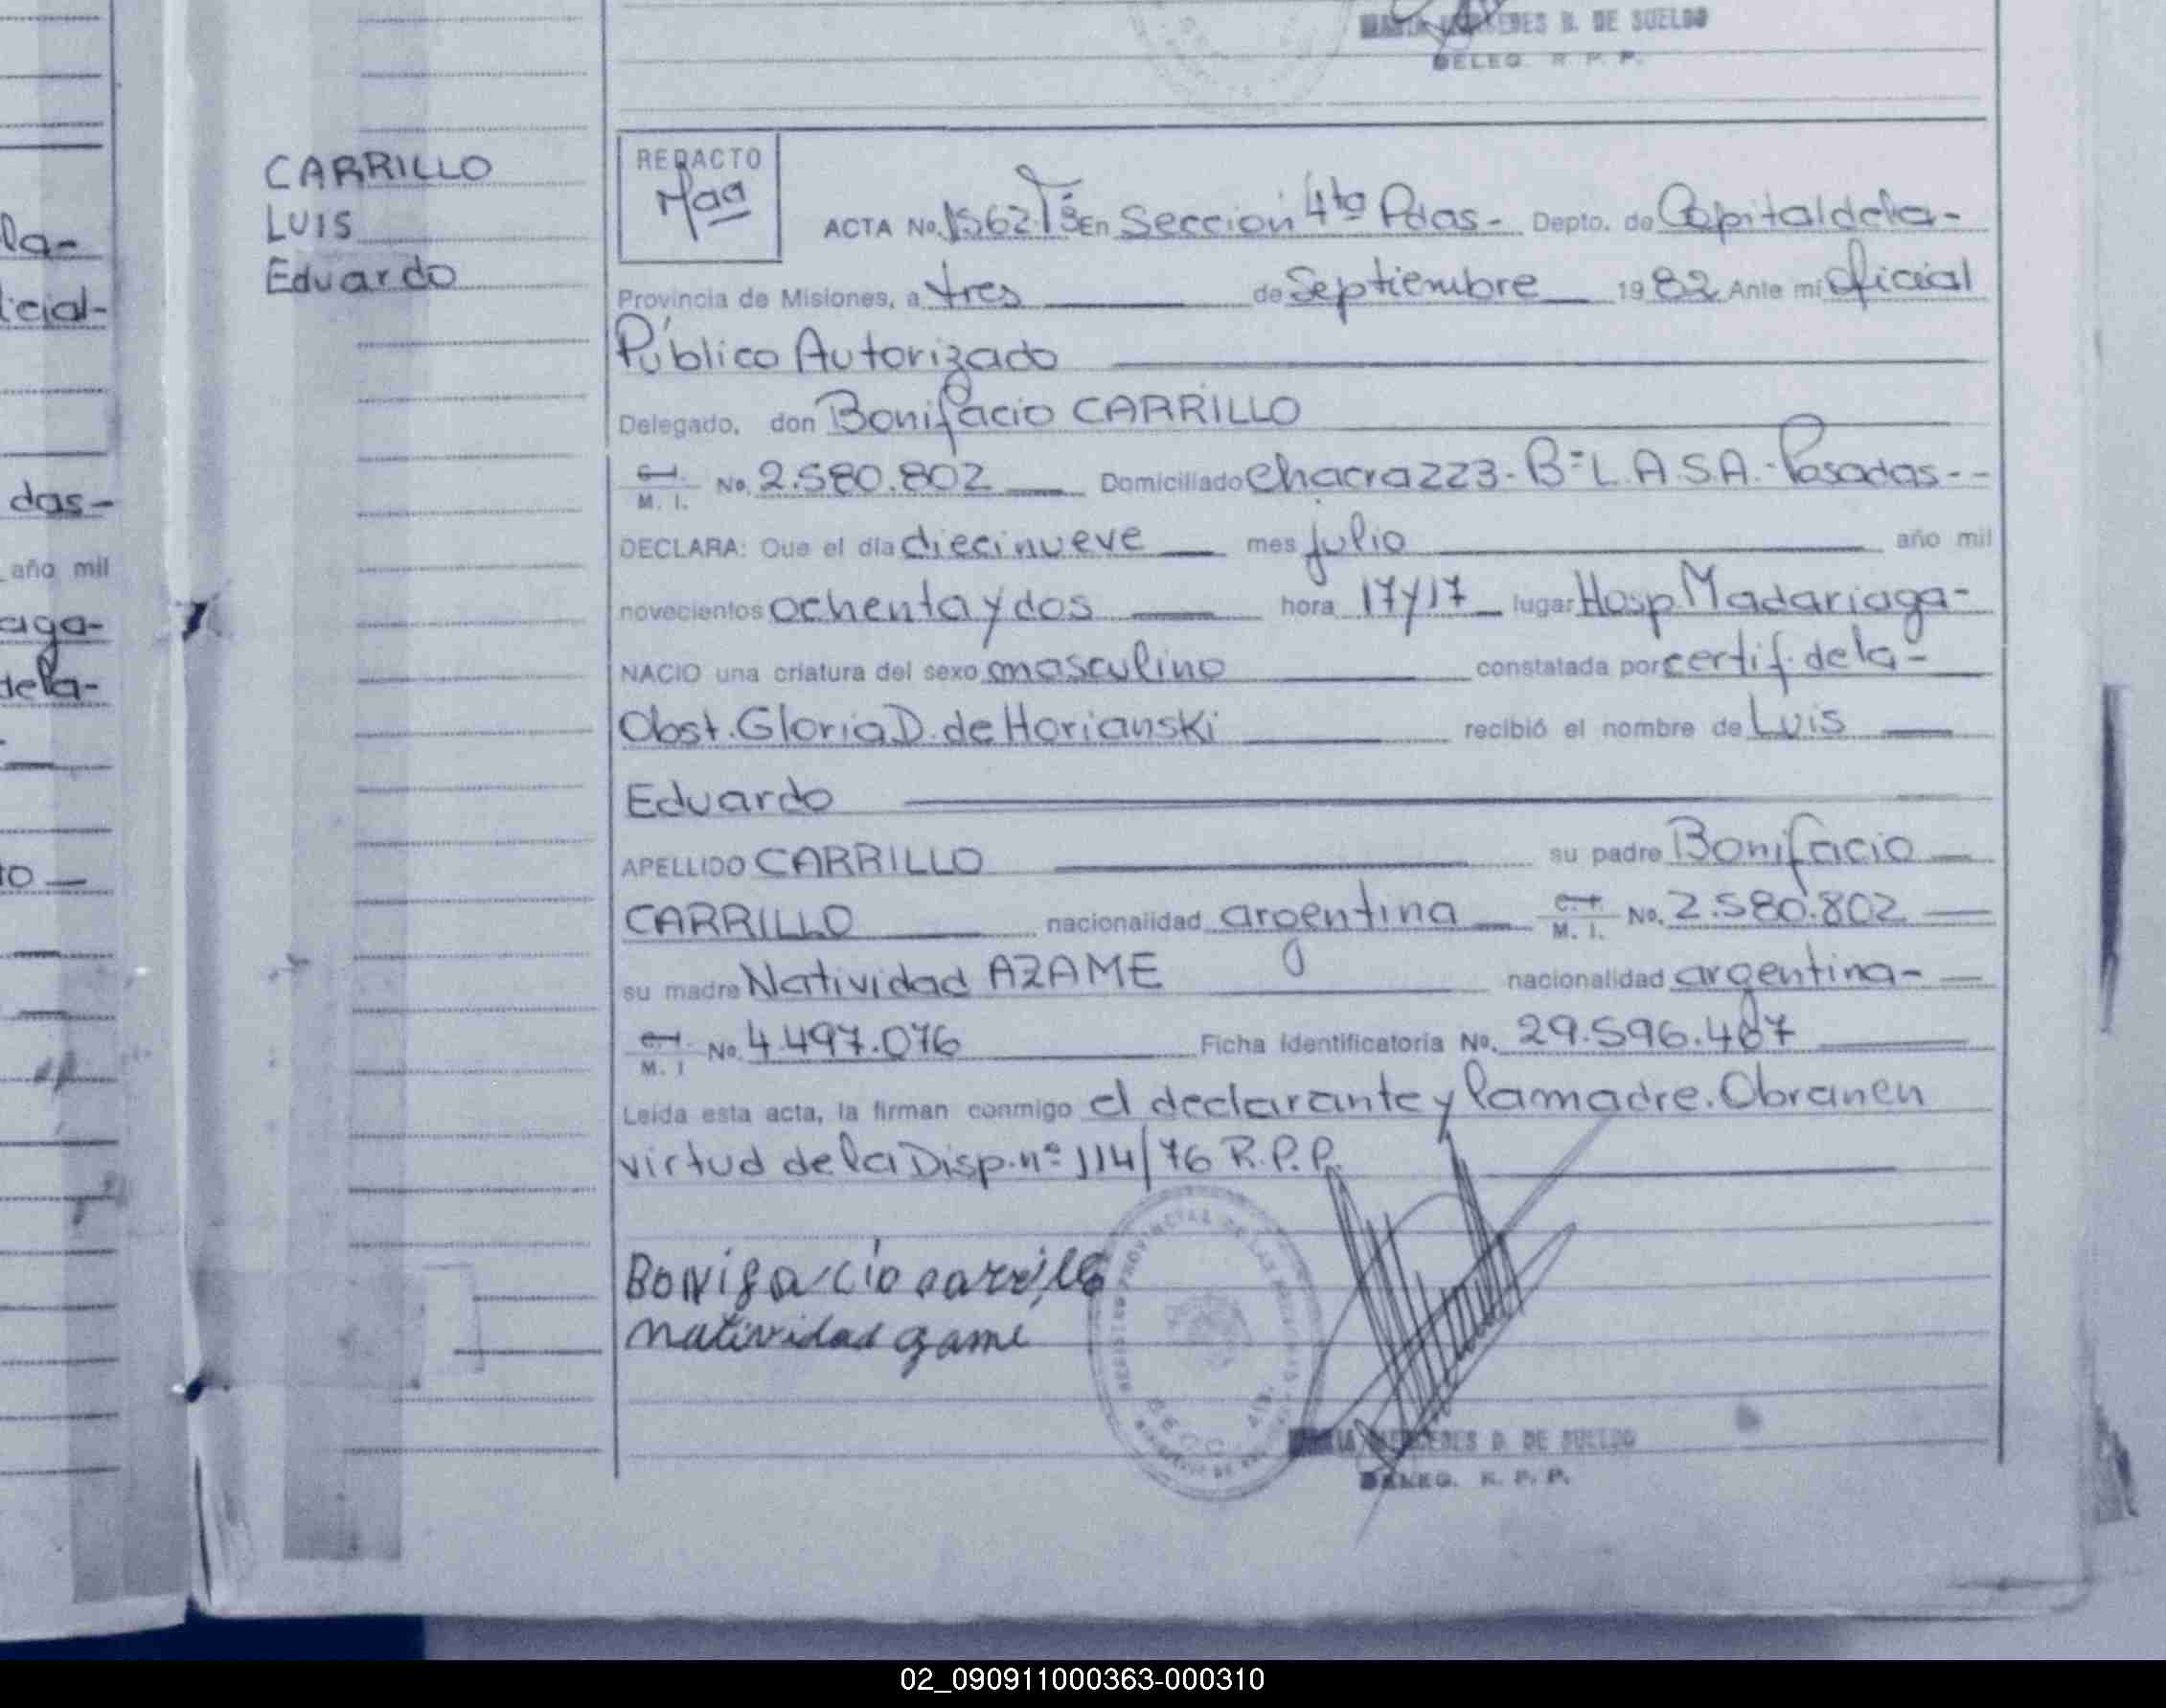 MARIA MERCEDES B. DE SUELDO
DELEG. R. P. P.
CARRILLO
LUIS
Eduardo
REDACTO
ACTA No. 1562 Tº 8 En Sección 4ta Pdas- Depto. de Capital de la-
Provincia de Misiones, a tres de Septiembre 1982 Ante mi Oficial
Público Autorizado
Delegado, don Bonifacio CARRILLO
M. I. No. 2.580.802 Domiciliado Chacra 223-Bº L.A.S.A.-Posadas--
DECLARA: Que el día diecinueve mes julio año mil
novecientos ochenta y dos hora 17y17 lugar Hosp. Madariaga-
NACIO una criatura del sexo masculino constatada por certif. de la-
Obst. Gloria D. de Horianski recibió el nombre de Luis
Eduardo
APELLIDO CARRILLO su padre Bonifacio
CARRILLO nacionalidad argentina M. I. No. 2.580.802
su madre Natividad AZAME nacionalidad argentina-
M. I No. 4.497.076 Ficha Identificatoria No. 29.596.467
Leída esta acta, la firman conmigo el declarante y la madre. Obran en
virtud de la Disp. nº 114/76 R.P.P.
Bonifacio carrillo
natividad azame
MARIA MERCEDES B. DE SUELDO
DELEG. R. P. P.
la-
icial-
das-
año mil
aga-
dela-
o
02_090911000363-000310